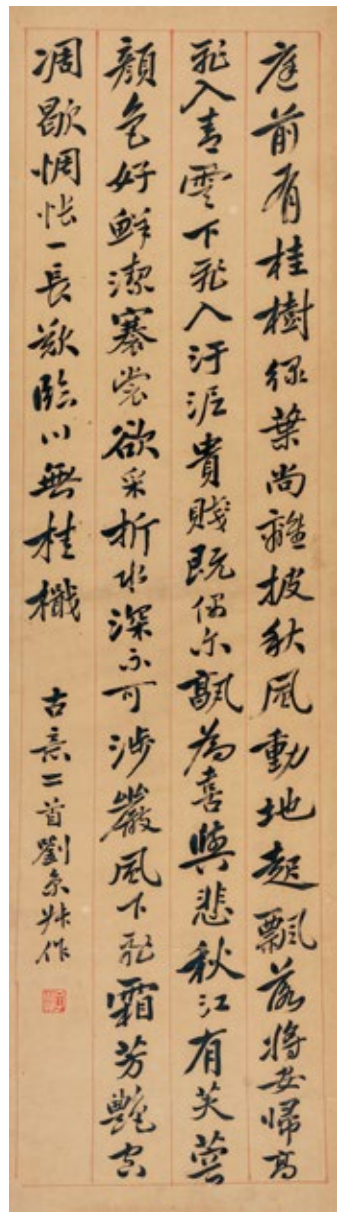 庭前有桂樹綠葉尚離披秋風動地起飄落將安歸高
飛入青雲下飛入汙泥貴賤既偶尔孰為喜與悲秋江有芙蓉
顏色好鮮潔褰裳欲采折水深不可涉嚴風下飛霜芳艷空
凋歇惆悵一長歎臨川無桂檝
古意二首劉京叔作